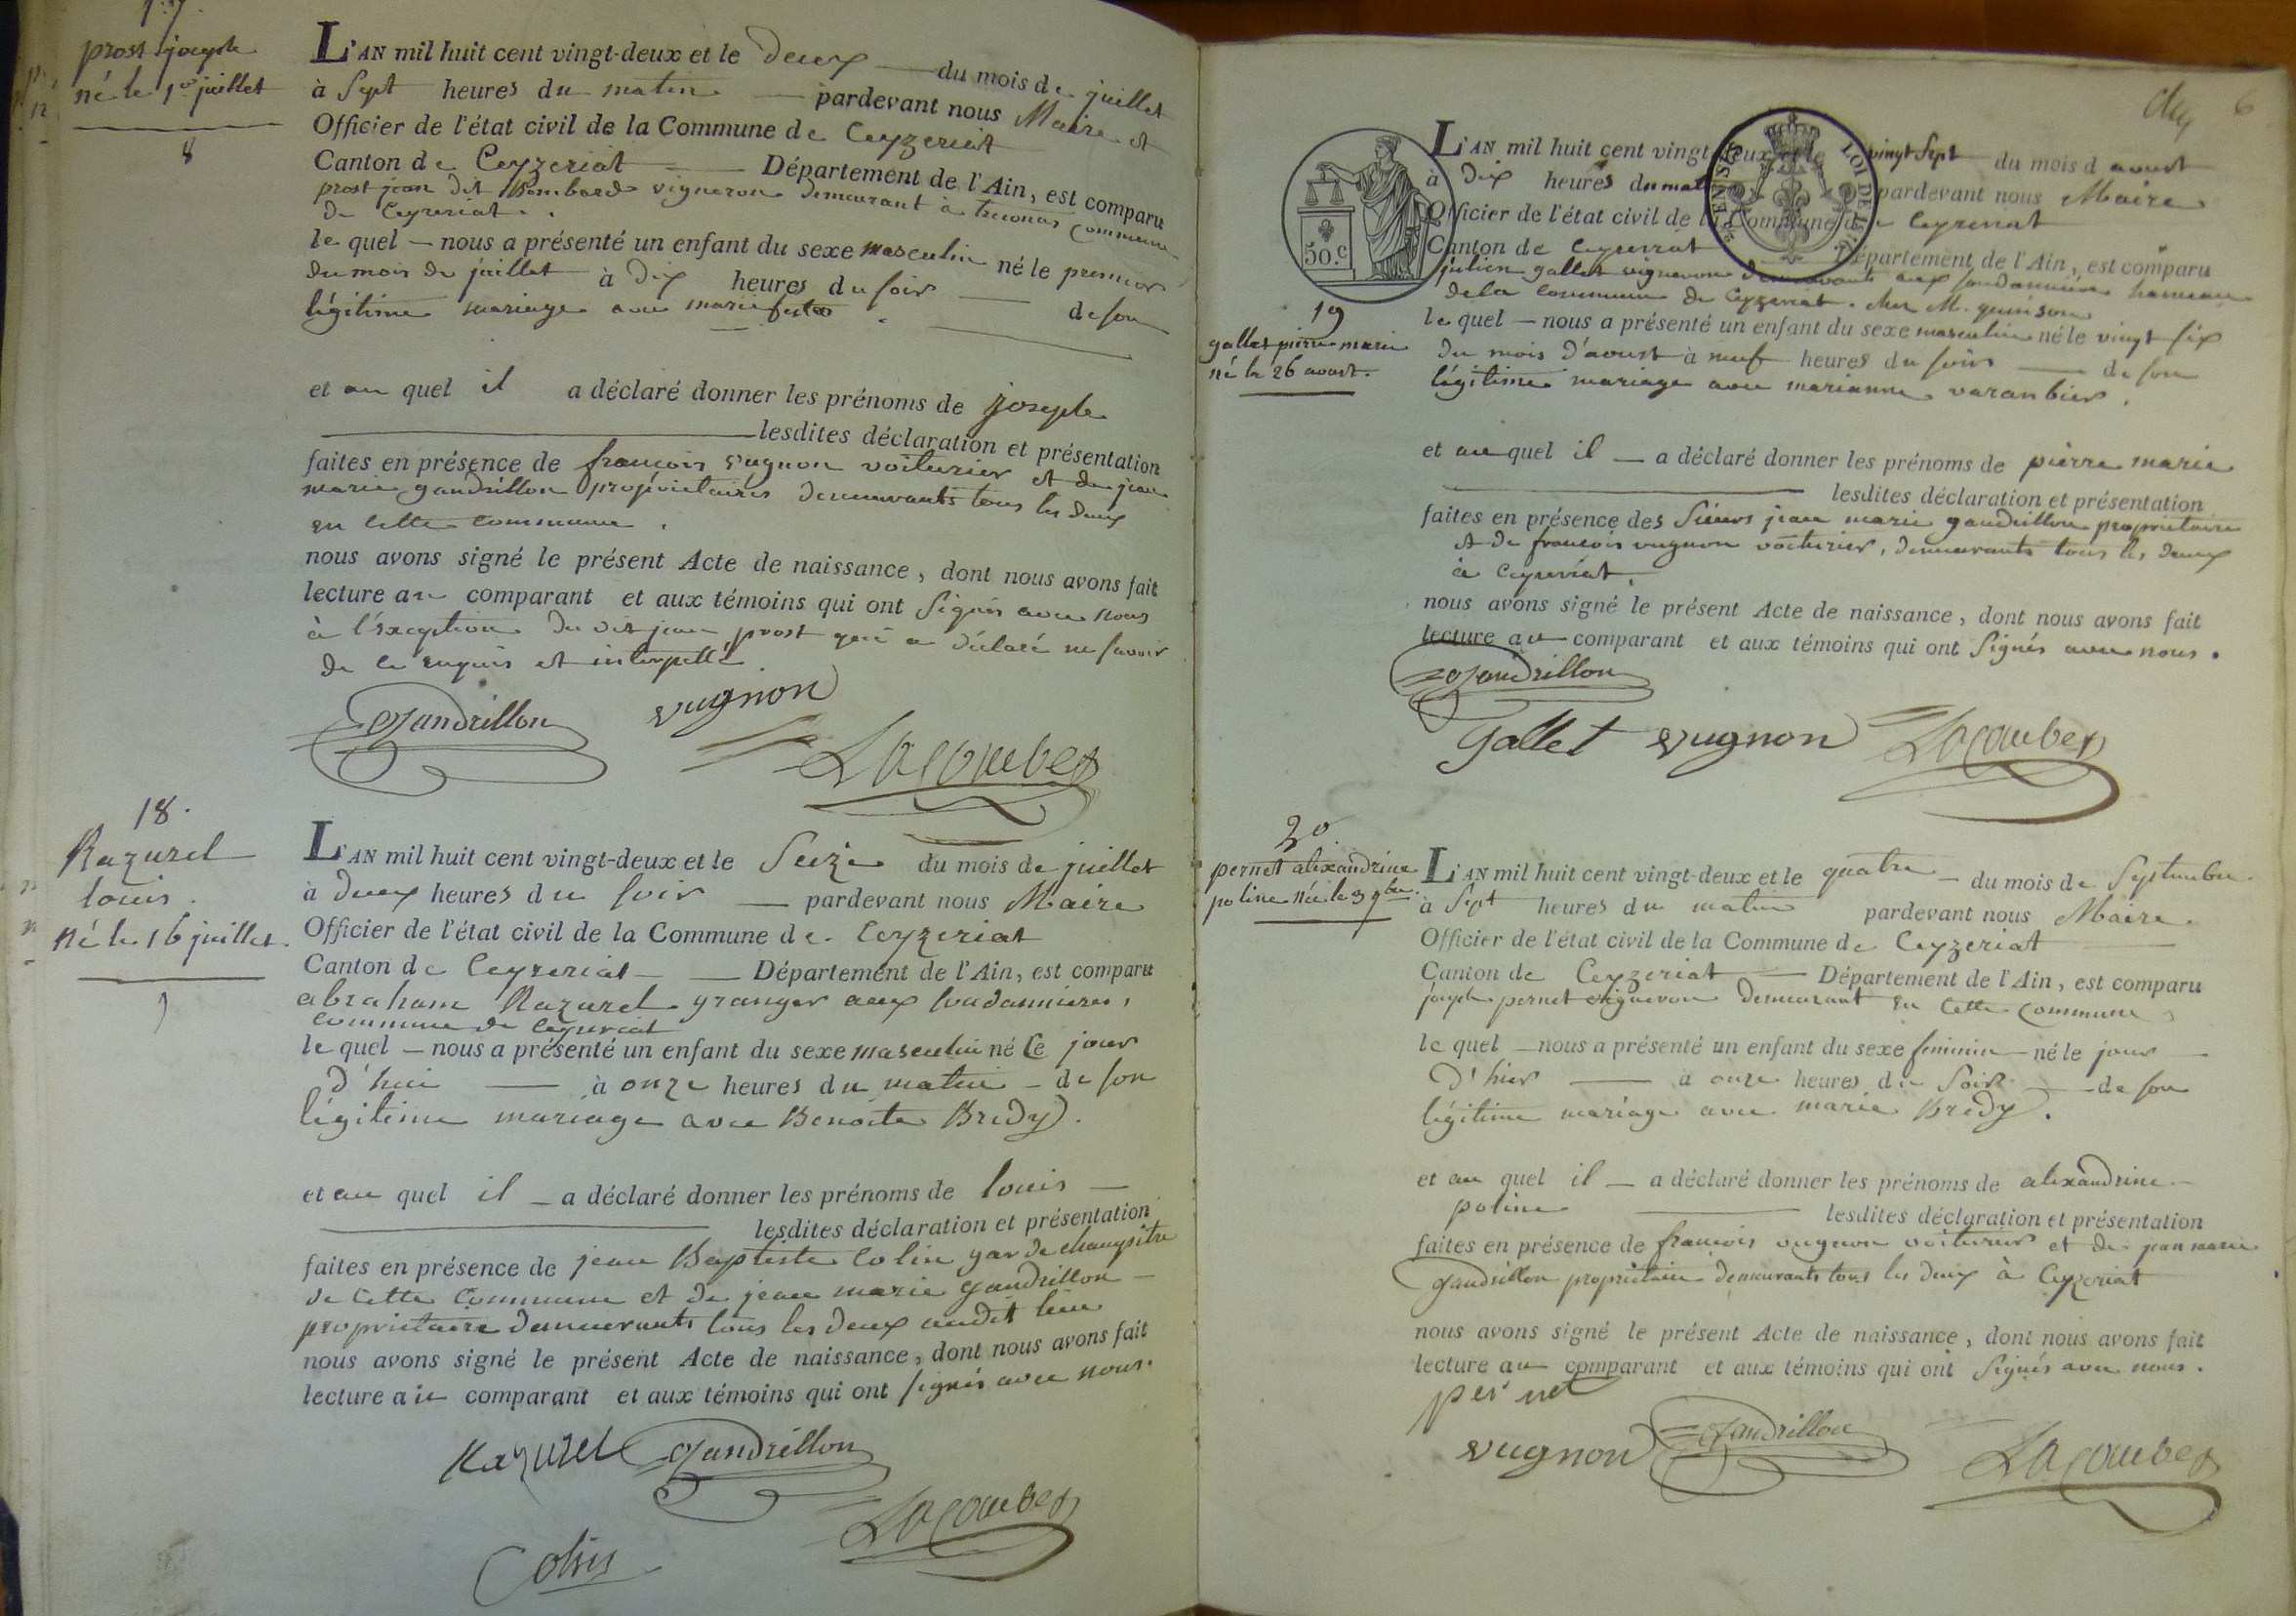 17
prost joseph
né le 1er juillet
8
L'AN mil huit cent vingt-deux et le deux du mois de juillet
à Sept heures du matin pardevant nous Maire et
Officier de l'état civil de la Commune de Ceyzeriat
Canton de Ceyzeriat Département de l'Ain, est comparu
prost jean dit Bombarde vigneron demeurant à treconas commune
de Ceyzeriat.
le quel nous a présenté un enfant du sexe masculin né le premier
du mois de juillet à dix heures du soir de son
légitime mariage avec marie
et au quel il a déclaré donner les prénoms de joseph
lesdites déclaration et présentation
faites en présence de francois vugnon voiturier et de jean
marie gandrillon propriétaires demeurants tous les deux
en cette commune.
nous avons signé le présent Acte de naissance, dont nous avons fait
lecture au comparant et aux témoins qui ont Signés avec nous
à l'exception du dit jean prost qui a déclaré ne savoir
de ce enquis et interpellé.
Gandrillon vugnon
Lacombe
18.
Razurel
louis.
né le 16 juillet.
L'AN mil huit cent vingt-deux et le Seize du mois de juillet
à deux heures du soir pardevant nous Maire
Officier de l'état civil de la Commune de Ceyzeriat
Canton de Ceyzeriat Département de l'Ain, est comparu
abraham Razurel granger aux soudannieres,
commune de Ceyzeriat
le quel nous a présenté un enfant du sexe masculin né Ce jour
d'hui à onze heures du matin de son
légitime mariage avec Benoite Bredy.
et au quel il a déclaré donner les prénoms de louis
lesdites déclaration et présentation
faites en présence de jean Baptiste Colin garde champitre
de cette Commune et de jean marie gandrillon
propriétaire demeurants tous les deux audit lieu
nous avons signé le présent Acte de naissance, dont nous avons fait
lecture au comparant et aux témoins qui ont signés avec nous.
Razurel Gandrillon
Lacombe
Colin
6
50.c
LOI DE
19
gallet pierre marie
né le 26 aoust.
L'AN mil huit cent vingt-deux et le vingt Sept du mois d aoust
à dix heures du mat pardevant nous Maire
Officier de l'état civil de la Commune de Ceyzeriat
Canton de Ceyzeriat Département de l'Ain, est comparu
julien gallet vigneron demeurant aux soudannieres hameau
de la commune de Ceyzeriat. chez M. quinson
le quel nous a présenté un enfant du sexe masculin né le vingt six
du mois d'aoust à neuf heures du soir de son
légitime mariage avec marianne varanbier.
et au quel il a déclaré donner les prénoms de pierre marie
lesdites déclaration et présentation
faites en présence des Sieurs jean marie gandrillon propriétaire
et de francois vugnon voiturier, demeurants tous les deux
à Ceyzeriat.
nous avons signé le présent Acte de naissance, dont nous avons fait
lecture au comparant et aux témoins qui ont Signés avec nous.
Gandrillon
Gallet vugnon Lacombe
20
pernet alixandrine
poline née le 3 7bre.
L'AN mil huit cent vingt-deux et le quatre du mois de Septembre
à Sept heures du matin pardevant nous Maire.
Officier de l'état civil de la Commune de Ceyzeriat
Canton de Ceyzeriat Département de l'Ain, est comparu
joseph pernet vigneron demeurant en cette commune
le quel nous a présenté un enfant du sexe feminin né le jour
d'hier à onze heures du Soir de son
légitime mariage avec marie Bredy.
et au quel il a déclaré donner les prénoms de alixandrine
poline lesdites déclaration et présentation
faites en présence de francois vugnon voiturier et de jean marie
Gandrillon propriétaire demeurants tous les deux à Ceyzeriat
nous avons signé le présent Acte de naissance, dont nous avons fait
lecture au comparant et aux témoins qui ont Signés avec nous.
pernet
vugnon Gandrillon Lacombe